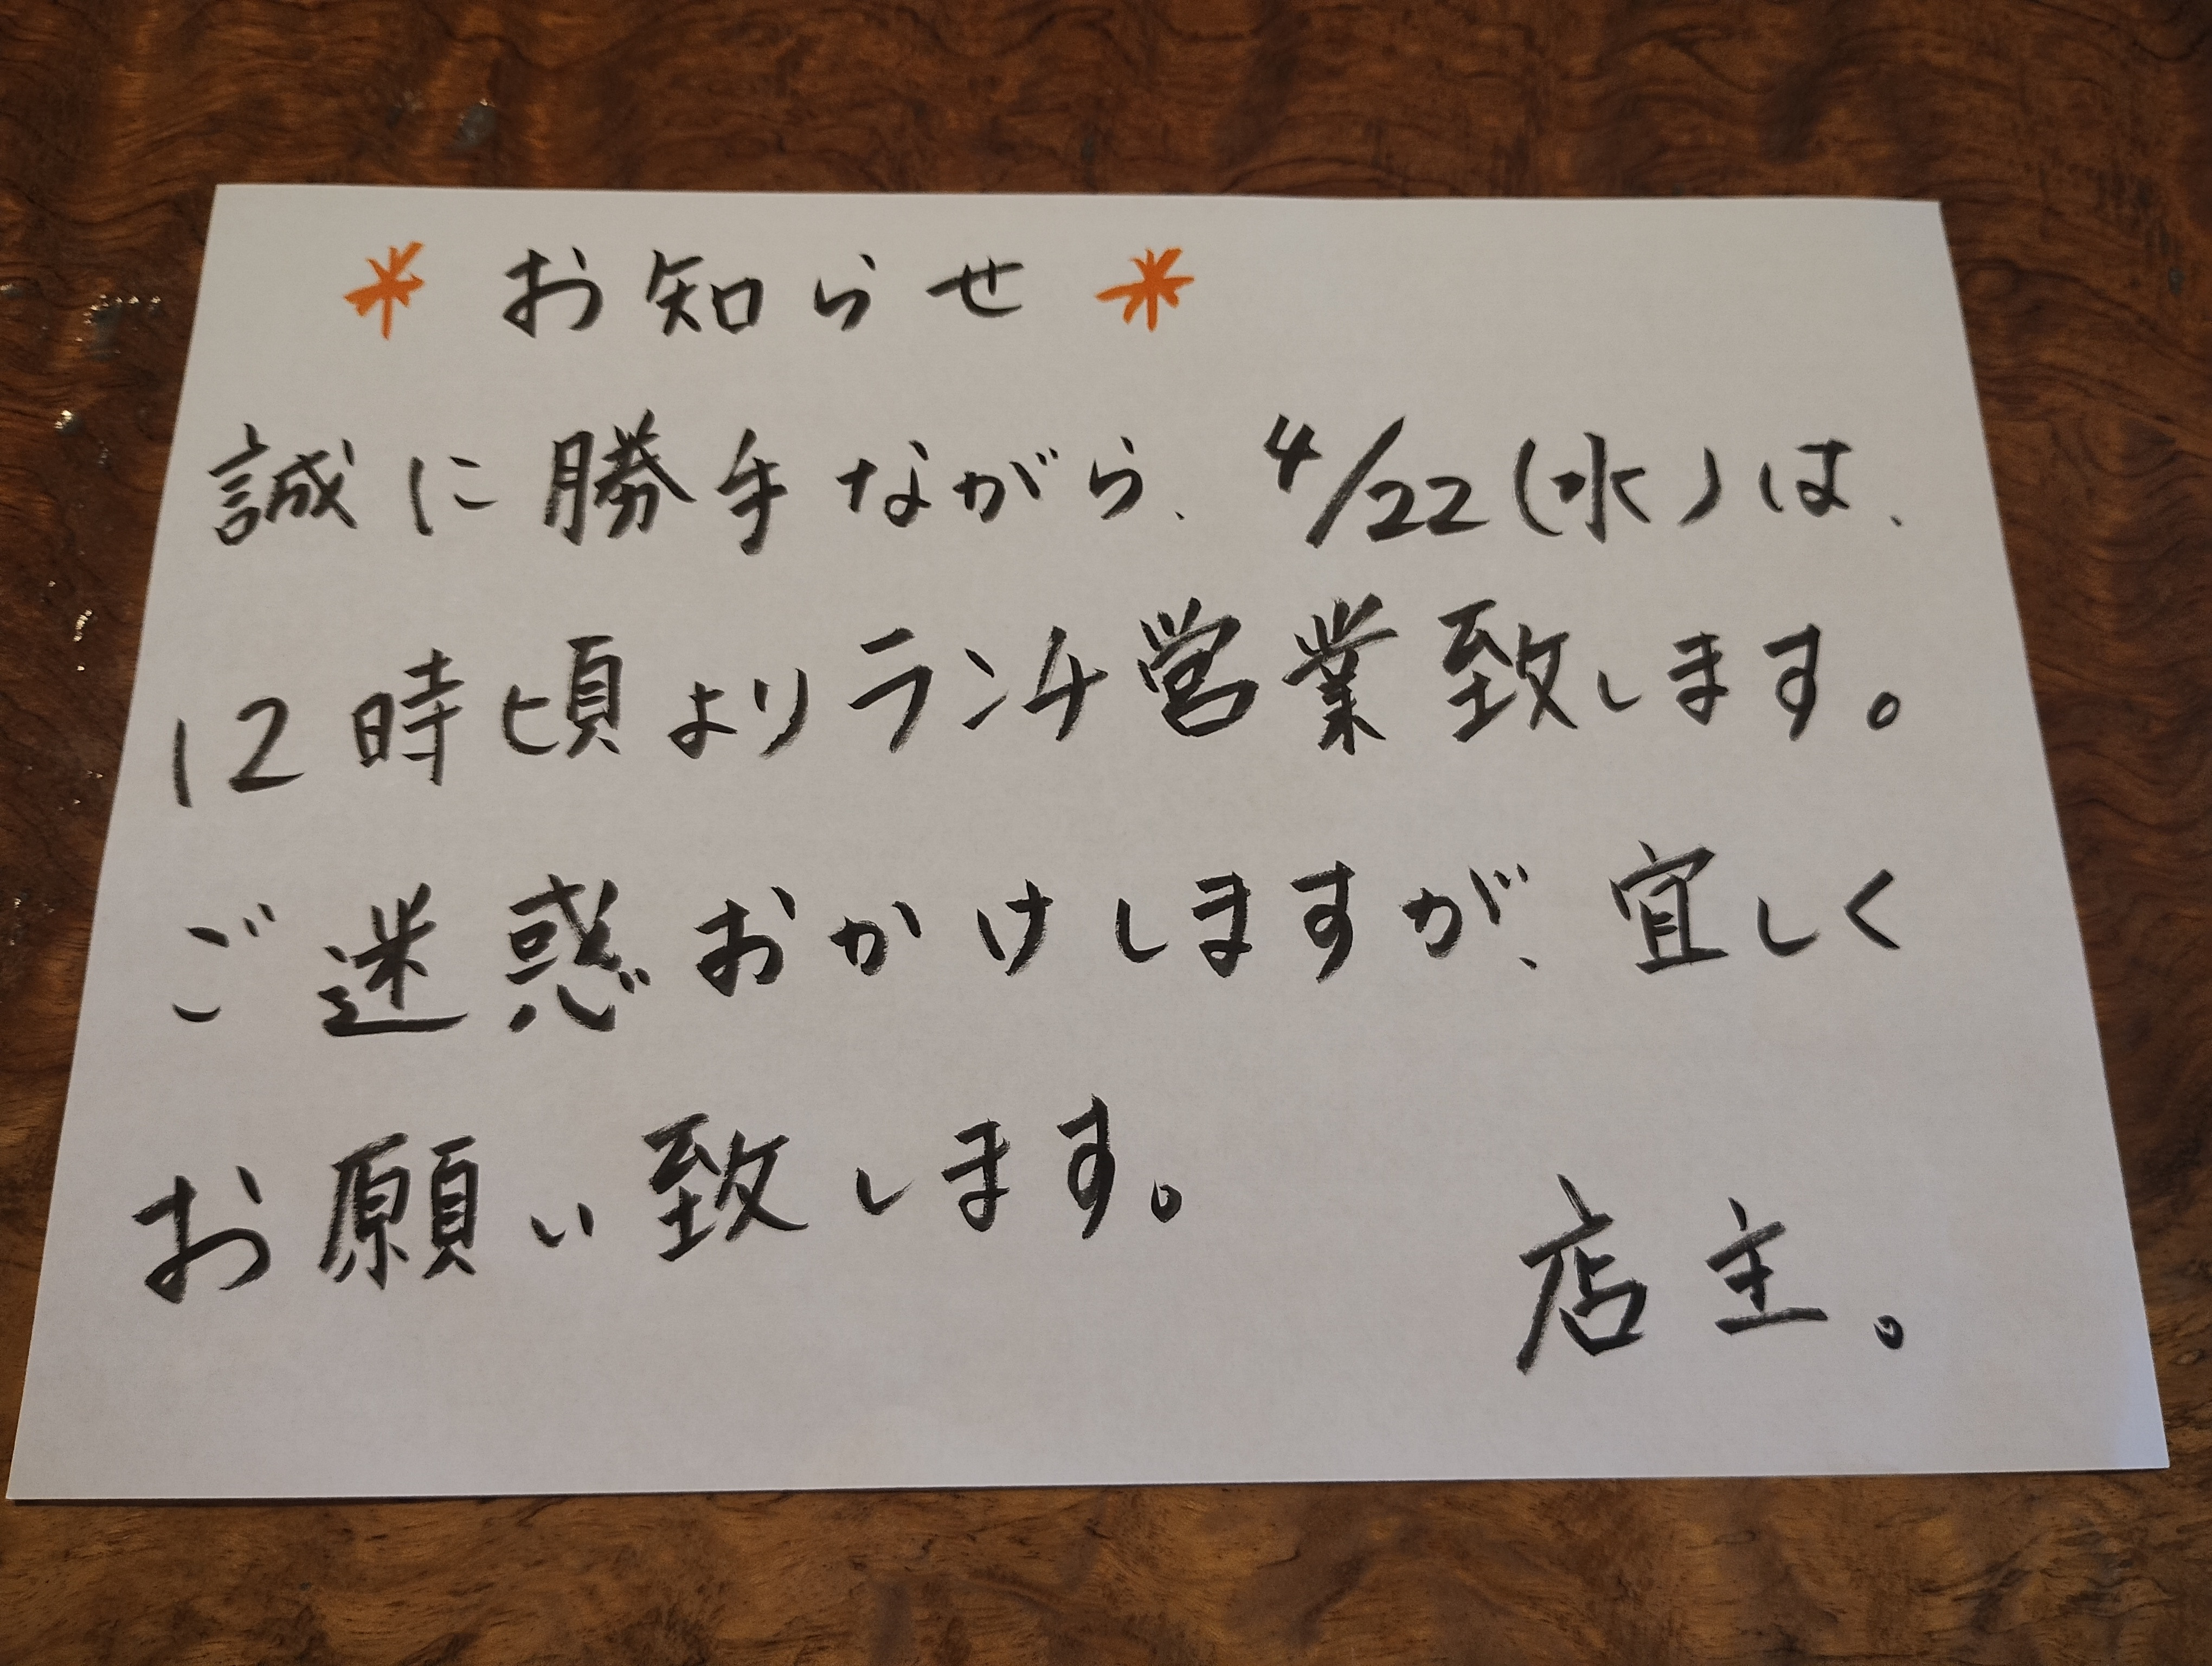 * お知らせ *
誠に勝手ながら、4/22(水)は、
12時頃よりランチ営業致します。
ご迷惑おかけしますが、宜しく
お願い致します。
店主。